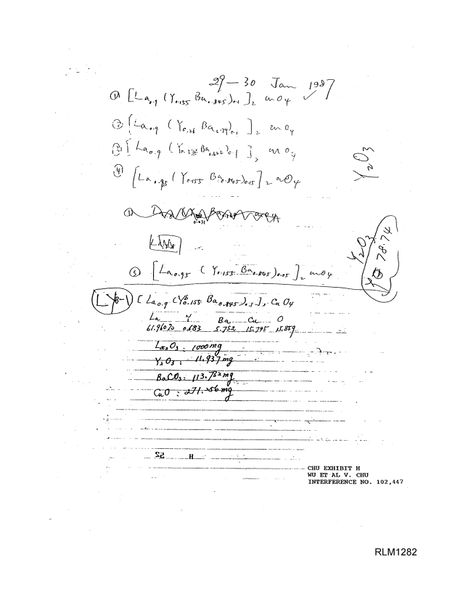 29-30 Jan 1987
① [La0.9 (Y0.155 Ba0.845)0.1]2 CuO4 ✓
② [La0.9 (Y0.16 Ba)0.1]2 CuO4
③ [La0.9 (Y Ba)0.1]2 CuO4
④ [La0.95 (Y0.155 Ba0.845)0.05]2 CuO4
Y2O3
Y2O3
78.74
⑤ [La0.95 (Y0.155 Ba0.845)0.05]2 CuO4
LY0-1 [La0.9 (Y0.155 Ba0.845)0.1]2 CuO4
La Y Ba Cu O
61.9620 0.683 5.752 15.795 15.809
La2O3: 1000mg
Y2O3: 11.937mg
BaCO3: 113.782mg
CuO: 271.256mg
52 H
CHU EXHIBIT H
WU ET AL V. CHU
INTERFERENCE NO. 102,447
RLM1282